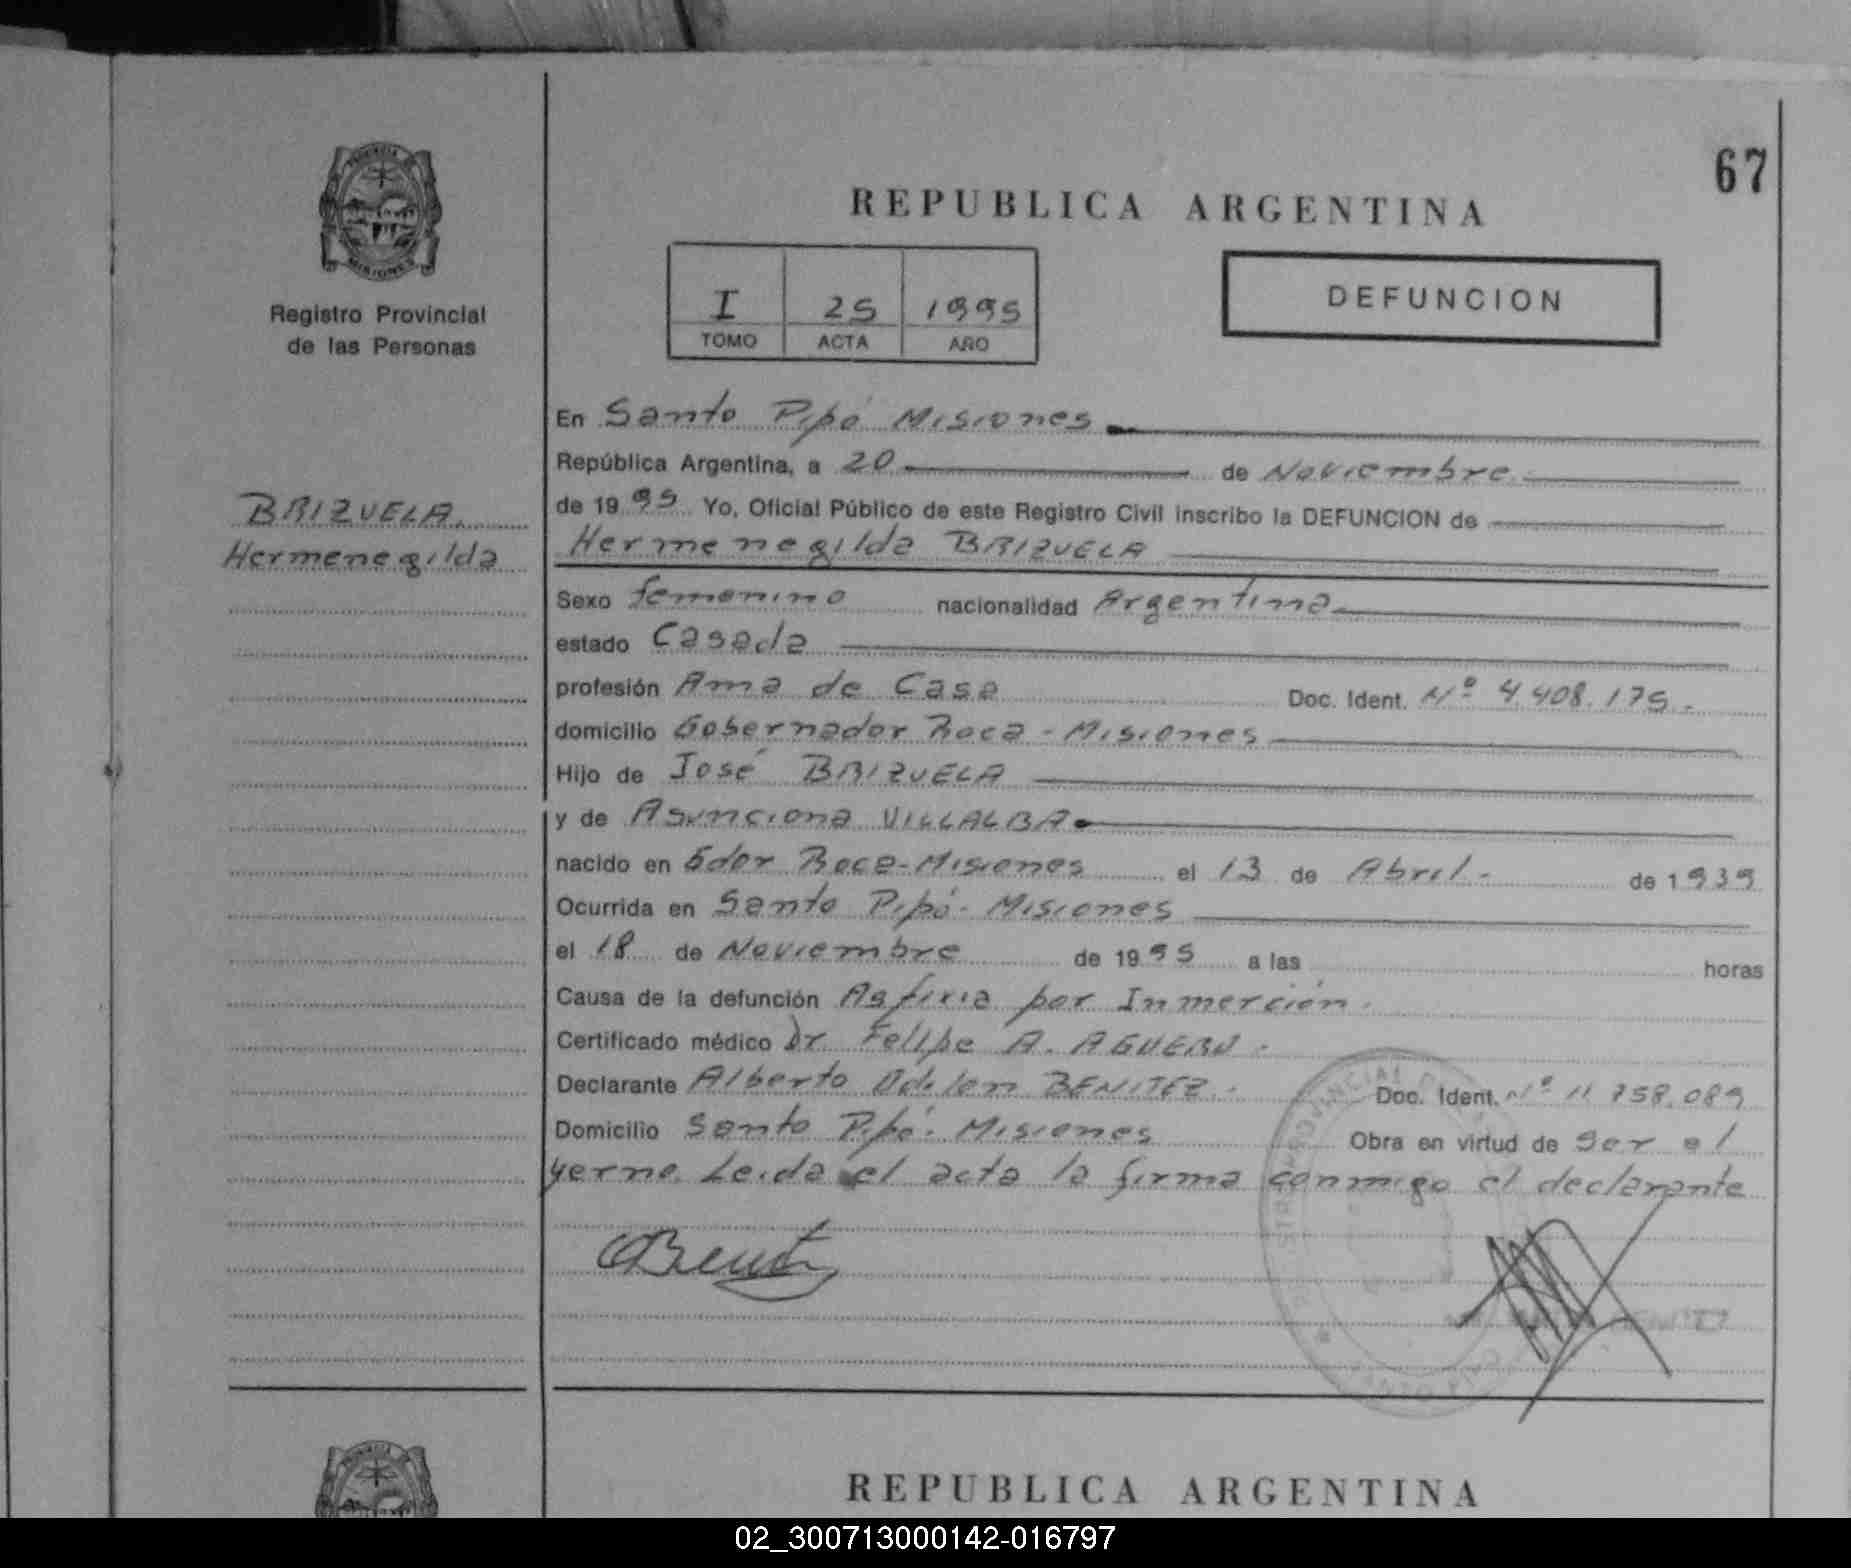 67
REPUBLICA ARGENTINA
PROVINCIA DE
MISIONES
Registro Provincial
de las Personas
I 25 1995
TOMO ACTA AÑO
DEFUNCION
BRIZUELA
Hermenegilda
En Santo Pipó Misiones
República Argentina, a 20 de Noviembre
de 1995 Yo, Oficial Público de este Registro Civil inscribo la DEFUNCION de
Hermenegilda BRIZUELA
Sexo femenino nacionalidad Argentina
estado Casada
profesión Ama de Casa Doc. Ident. Nº 4.408.175.
domicilio Gobernador Roca - Misiones
Hijo de José BRIZUELA
y de Asunciona VILLALBA
nacido en Gdor Roca-Misiones el 13 de Abril. de 1939
Ocurrida en Santo Pipó- Misiones
el 18 de Noviembre de 1995 a las horas
Causa de la defunción Asfixia por Inmerción.
Certificado médico Dr Felipe A. AGUERO.
Declarante Alberto Odilon BENITEZ. Doc. Ident. Nº 11.758.089
Domicilio Santo Pipó. Misiones Obra en virtud de ser el
yerno. Leida el acta la firma conmigo el declarante
REPUBLICA ARGENTINA
02_300713000142-016797